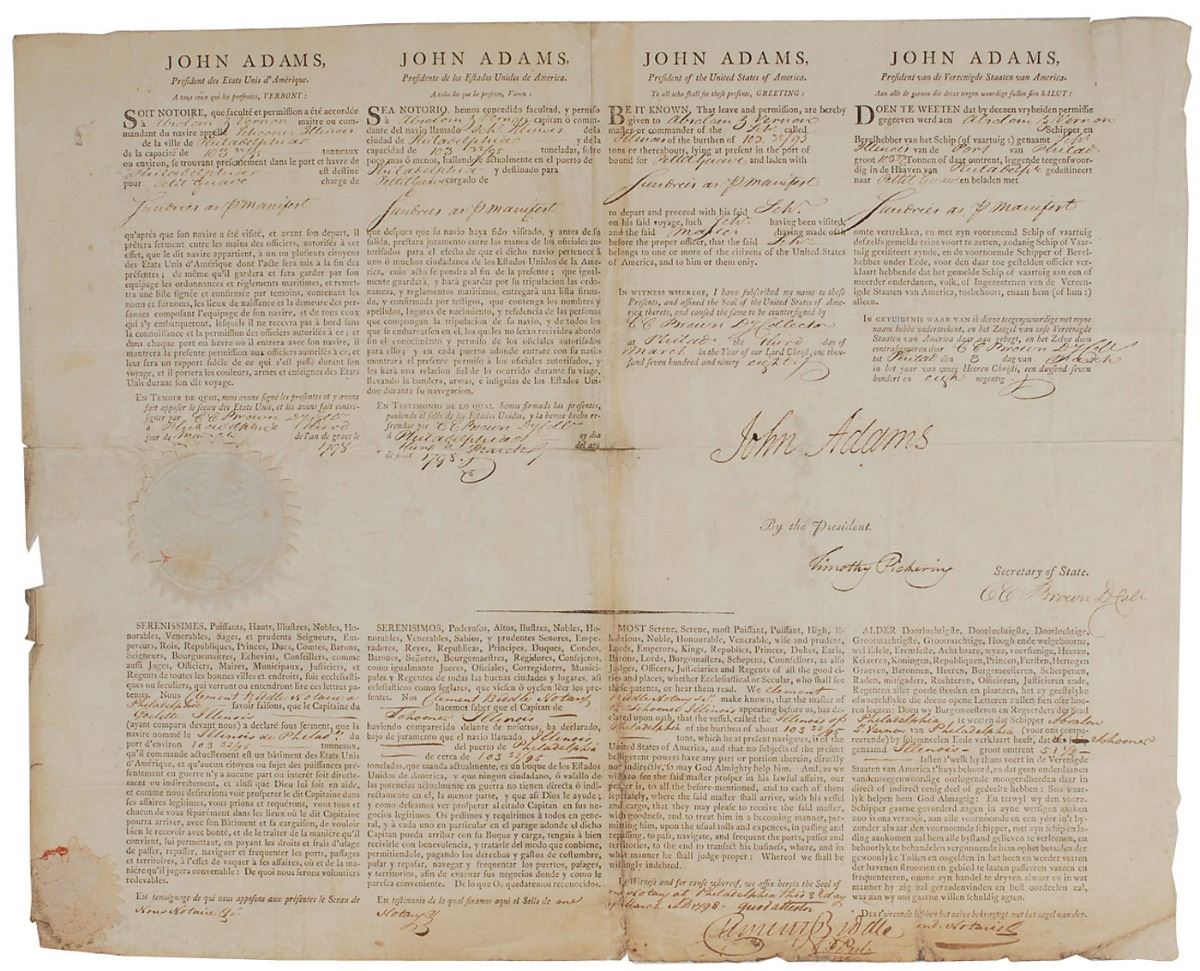 JOHN ADAMS,
President des Etats Unis d'Amérique.
A tous ceux qui les presentes, VERRONT:
SOIT NOTOIRE, que faculté et permission a été accordée
à Absalom B Vernon maitre ou com-
mandant du navire appellé Schooner Illinois
de la ville de Philadelphia
de la capacité de 103 32/95 tonneaux
ou environ, se trouvant présentement dans le port et havre de
Philadelphia et destiné
pour Petit Guave chargé de
Sundries as p manifest
qu'après que son navire a été visité, et avant son départ, il
prêtera serment entre les mains des officiers, autorisés à cet
effet, que le dit navire appartient, à un ou plusieurs citoyens
des Etats Unis d'Amérique dont l'acte sera mis à la fin des
présentes; de même qu'il gardera et fera garder par son
équipage les ordonnances et règlements maritimes, et remet-
tra une liste signée et confirmée par témoins, contenant les
noms et surnoms, les lieux de naissance et la demeure des per-
sonnes composant l'équipage de son navire, et de tous ceux
qui s'y embarqueront, lesquels il ne recevra pas à bord sans
la connaissance et la permission des officiers autorisés à ce; et
dans chaque port ou havre où il entrera avec son navire, il
montrera la présente permission aux officiers autorisés à ce, et
leur fera un rapport fidèle de ce qui s'est passé durant son
voyage, et il portera les couleurs, armes et enseignes des Etats
Unis durant son dit voyage.
EN TEMOIN DE QUOI, nous avons signé les présentes et y avons
fait apposer le sceau des Etats Unis, et les avons fait contre-
signer par CC Brown Dy Collr
à Philadelphia le third
jour de March de l'an de grace le
1798
JOHN ADAMS,
Presidente de los Estados Unidos de America.
A todos los que la presente, Vieren:
SEA NOTORIO, hemos concedido facultad, y permiso
à Absalom B Vernon capitan ò comman-
dante del navio llamado Schr Illinois de la
ciudad de Philadelphia de la
capacidad de 103 32/95 toneladas, sobre
poco mas ò menos, hallandose actualmente en el puerto de
Philadelphia y destinado para
Petit Guave cargado de
Sundries as p Manifest
que despues que su navio haya sido visitado, y antes de su
salida, prestara juramento entre las manos de los oficiales au-
torisados para el efecto de que el dicho navio pertenece à
uno ò muchos ciudadanos de los Estados Unidos de la Ame-
rica, cuio acto se pondra al fin de la presente; que igual-
mente guardará, y hará guardar por su tripulacion las orde-
nanzas, y reglamentos maritimos, entregará una lista firma-
da, y confirmada por testigos, que contenga los nombres y
apellidos, lugares de nacimiento, y residencia de las personas
que compongan la tripulacion de su navio, y de todos los
que se embarcaren en el, los quales no seran recividos abordo
sin el conocimiento y permiso de los oficiales autorisados
para ello; y en cada puerto adonde entrare con su navio
montrará el presente permiso à los oficiales autorisados, y
les hará una relacion fiel de lo ocurrido durante su viage,
llevando la bandera, armas, e insignias de los Estados Uni-
dos durante su navegacion.
EN TESTIMONIO DE LO QUAL hemos firmado las presentes,
poniendo el sello de los Estados Unidos, y la hemos hecho re-
frendar por CC Brown Dy Collr
à Philadelphia oy dia
third March del ano
de gracia 1798
JOHN ADAMS,
President of the United States of America.
To all who shall see these presents, GREETING:
BE IT KNOWN, That leave and permission, are hereby
given to Absalom B Vernon
master or commander of the Schr called
Illinois of the burthen of 103 32/95 tons
or thereabouts, lying at present in the port of
bound for Petit Guave, and laden with
Sundries as p manifest
to depart and proceed with his said Schr
on his said voyage, such Schr having been visited,
and the said Master having made oath
before the proper officer, that the said Schr
belongs to one or more of the citizens of the United States
of America, and to him or them only.
IN WITNESS WHEREOF, I have subscribed my name to these
Presents, and affixed the Seal of the United States of Ame-
rica thereto, and caused the same to be countersigned by
CC Brown Dy Collector
at Philada the third day of
March in the Year of our Lord Christ, one thou-
sand seven hundred and ninety eight.
JOHN ADAMS,
President van de Vereenigde Staaten van America.
Aan alle de geenen die deeze tegenwoordige sullen sien SALUT:
DOEN TE WEETEN dat by deezen vryheiden permissie
gegeven werd aen Absalom B Vernon
Schipper en
Bevelhebber van het Schip (of vaartuig:) genaamt Schr
Illinois van de Port van Philada
groot 103 32/95 Tonnen of daar omtrent, leggende teegenswoor-
dig in de Haaven van Philadelpha gedestineert
naar Petit Guave en beladen met
Sundries as p manifest
omte vertrekken, en met zyn voornoemd Schip of vaartuig
deszelfs gemelde reize voort te zetten, zodanig Schip of Vaar-
tuig gevisiteert zynde, en de voornoemde Schipper of Bevel-
hebber onder Eede, voor den daar toe gestelden officier ver-
klaart hebbende dat het gemelde Schip of vaartuig aan een of
meerder onderdanen, volk, of Ingezetenen van de Vereenig-
de Staaten van America, toebehoort, enaan hem (of hun:)
alleen.
IN GETUIGENIS WAAR VAN ik deeze teegenwoordige met myne
naam hebbe onderteekent, en het Zeegel van onse Vereenigde
Staaten van America daar aan gehegt, en het Zelve doen
contrasigneeren door CC Brown Dy Collr
tot Philad den 3 dag van March
in het jaar van onzen Heeren Christi, een duysend seven
hundert en eigh negentig
John Adams
By the President.
Timothy Pickering Secretary of State.
CC Brown D Colr
SERENISSIMES, Puissants, Hauts, Illustres, Nobles, Ho-
norables, Venerables, Sages, et prudents Seigneurs, Em-
pereurs, Rois, Republiques, Princes, Ducs, Comtes, Barons,
Seigneurs, Bourguemaitres, Echevins, Conseillers, comme
aussi Juges, Officiers, Maires, Municipaux, Justiciers, et
Regents de toutes les bonnes villes et endroits, soit ecclésiasti-
ques ou seculiers, qui verront ou entendront lire ces lettres pa-
tentes. Nous Clement Biddle notary
Philadelphia savoir faisons, que le Capitaine du
Goelette Illinois
devant nous) a déclaré sous serment, que la
navire nommé le Illinois de Philada du
port d'environ 103 32/95 tonneaux,
qu'il commande actuellement est un bâtiment des Etats Unis
d'Amérique, et qu'aucun citoyen ou sujet des puissances pre-
sentement en guerre n'y a aucune part ou intérêt soit directe-
ment ou indirectement, et ainsi que Dieu lui soit en aide,
et comme nous desirerions voir prosperer le dit Capitaine dans
ses affaires legitimes, vous prions et requérons, vous tous et
chacun de vous séparément dans les lieux où le dit Capitaine
pourra arriver, avec son Bâtiment et sa cargaison, de vouloir
bien le recevoir avec bonté, et de le traiter de la manière qu'il
convient, lui permettant, en payant les droits et frais d'usage
de passer, repasser, naviguer et frequenter les ports, passages
et territoires, à l'effet de vaquer à ses affaires, où et de la ma-
nière qu'il jugera convenable: De quoi nous serons volontiers
redevables.
En temoignage de qui nous apposons aux présentes le Sceau de
Nous Notaire &c
SERENISIMOS, Poderosos, Altos, Ilustres, Nobles, Ho-
norables, Venerables, Sabios, y prudentes Senores, Empe-
radores, Reyes, Republicas, Principes, Duques, Condes,
Barones, Señores, Bourgomaestres, Regidores, Consejeros,
como igualmente Jueces, Oficiales, Corregidores Municipa-
pales y Regentes de todas las buenas ciudades y lugares, asi
eclesiasticos como seglares, que viesen ò oyesen léer los pre-
sentes. Nos Clement Biddle Notary
hacemos saber que el Capitan de
Schooner Illinois
habiendo comparecido delante de nosotros, ha declarado,
bajo de juramento que el navio llamado, Illinois
del puerto de Philadelphia
de cerca de 103 32/95
toneladas, que manda actualmente, es un boque de los Estados
Unidos de América, y que ningun ciudadano, ò vafallo de
las potencias actualmente en guerra no tienen directa ò indi-
rectamente en el, la menor parte, y que asi Dios le ayude;
y como deseamos ver prosperar al citado Capitan en sus ne-
gocios legitimos. Os pedimos y requirimos à todos en gene-
ral, y à cada uno en particular en el parage adonde el dicho
Capitan pueda arribar con su Boque y Carga, tengais à bien
recivirle con benevolencia, y tratarle del modo que conbiene,
permitiendole, pagando los derechos y gastos de costumbre,
pasar y repasar, navegar y frequentar los puertos, pasages,
y territorios, afin de evacuar sus negocios donde y como le
paresca conveniente. De lo que Os quedaremos reconocidos.
En testimonio de la qual firamos aqui el Sello de me
Notary &
MOST Serene, Serene, most Puissant, Puissant, High, Il-
lustrious, Noble, Honourable, Venerable, wise and prudent,
Lords, Emperors, Kings, Republics, Princes, Dukes, Earls,
Barons, Lords, Burgomasters, Schepens, Counsellors, as also
Judges, Officers, Justiciaries and Regents of all the good ci-
ties and places, whether Ecclesiastical or Secular, who shall see
these patents, or hear them read. We Clement
Biddle Notary make known, that the master of
the Schooner Illinois appearing before us, has de-
clared upon oath, that the vessel, called the Illinois of
Philadelphia of the burthen of about 103 32/95
tons, which he at present navigates, is of the
United States of America, and that no subjects of the present
belligerent powers have any part or portion therein, directly
nor indirectly, so may God Almighty help him. And, as we
wish to see the said master prosper in his lawful affairs, our
prayer is, to all the before-mentioned, and to each of them
separately, where the said master shall arrive, with his vessel
and cargo, that they may please to receive the said master,
with goodness, and to treat him in a becoming manner, per-
mitting him, upon the usual tolls and expences, in passing and
repassing, to pass, navigate, and frequent the ports, passes and
territories, to the end to transact his business, where, and in
what manner he shall judge proper: Whereof we shall be
willingly indebted.
In Witness and for cause whereof, we affix hereto the Seal of
me Notary at Philadelphia this 3d day
of March AD 1798.
Clement Biddle
ALDER Doorluchtigste, Doorluchtige, Doorluchtige,
Grootmachtigste, Grootmachtige, Hoogh ende welgeboorne,
Wel Edele, Erentfeste, Acht baare, wyze, voorsienige, Heeren,
Keizeren, Koningen, Republiquen, Princen, Fursten, Hertogen
Graeven, Baronnen, Heeren, Burgemeesteren, Scheepenen,
Raden, mitsgaders, Rechteren, Officieren, Justicieren, en
Regenten aller goede steeden en plaatzen, het zy geestelyke
ofwereldlyke die deeze opene Letteren zullen sien ofte hoo-
ren leezen: Doen wy Burgemeesteren en Regeerders der Stad
Philadelphia te weeten dat Schipper Absalom
B. Vernon van Philadelphia (voor ons compa-
reerende) by solemneelen Eede verklaart heeft, dat het Schooner
genaamd Illinois groot omtrent
Lasten t'welk hy thans voert in de Vereenigde
Staaten van America t'huys behoord, en dat geen onderdanen
vande reegenwoordige oorlogende mogendheeden daar in
direct of indirect eenig deel of gedeelte hebben: Soo waar-
lyk helpen hem God Almagtig: En terwyl wy den voorz.
Schipper gaarne gevordert zagen in zyne wettigen zaaken
zoo is ons verzoek, aan alle voornoemde en een yder in't by-
zonder alwaar den voornoemde schipper, met zyn schip en la-
ding aankomen zal hem alle bystand gelieven te verleenen, en
behoorlyk te behandelen vergunnende hem op het betaalen der
gewoonlyke Tollen en ongelden in het heen en weeder vaaren
der havenen stroomen en gebied te laaten passeeren vaaren en
frequenteren, omme zyn handel te dryven alwaar en in wat
manner hy zig zal geraadenvinden en best oordeelen zal,
waar aan wy ons gaarne willen schuldig agten.
Des t'oirconde hebben het neeve bekragtigt met het zegel van der.